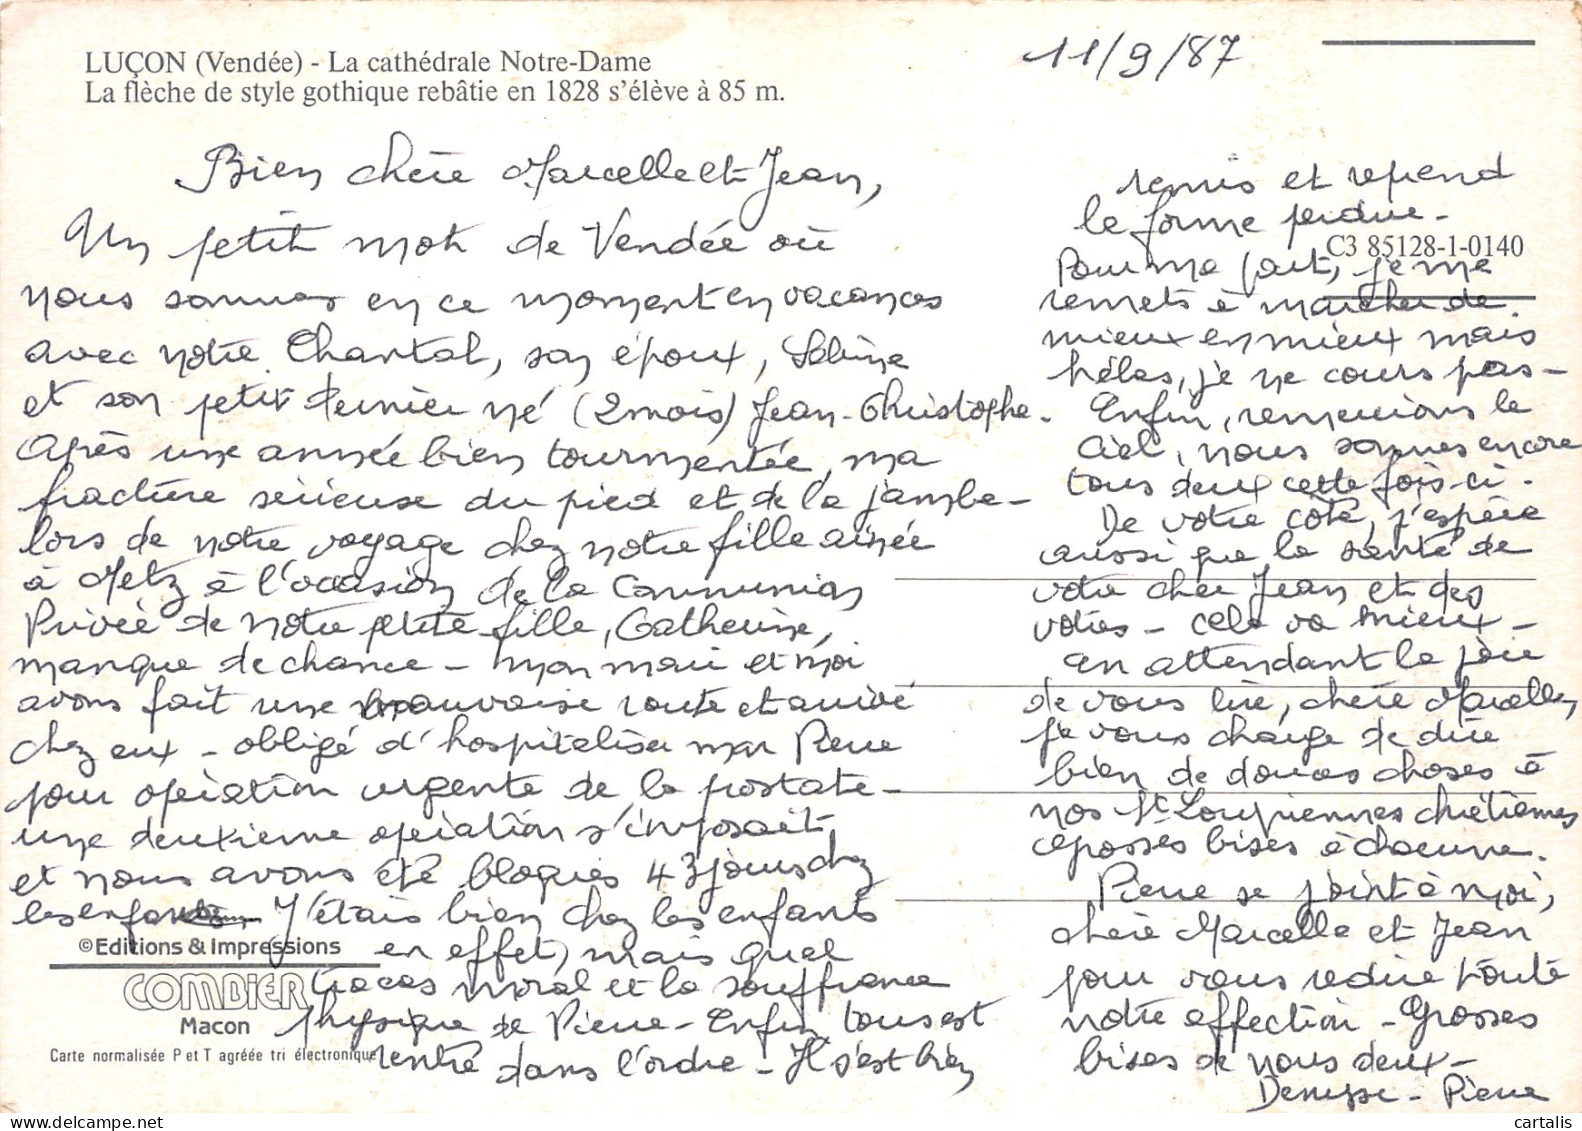 LUÇON (Vendée) - La cathédrale Notre-Dame
La flèche de style gothique rebâtie en 1828 s'élève à 85 m.
11/9/87
Bien chère Marcelle et Jean,
Un petit mot de Vendée où
nous sommes en ce moment en vacances
avec notre Chantal, son époux, Sabine
et son petit dernier né (2 mois) Jean-Christophe.
Après une année bien tourmentée, ma
fracture sérieuse du pied et de la jambe -
lors de notre voyage chez notre fille aînée
à Metz à l'occasion de la Communion
Privée de notre petite fille, Catherine,
manque de chance - mon mari et moi
avons fait une mauvaise route et arrivé
chez eux - obligé d'hospitaliser mon Pierre
pour opération urgente de la prostate -
une deuxième opération s'imposait,
et nous avons été bloqués 43 jours chez
les enfants. J'étais bien chez les enfants
en effet, mais quel
tracas moral et la souffrance
physique de Pierre - Enfin tout est
rentré dans l'ordre - Il s'est bien
©Editions & Impressions
COMBIER
Macon
Carte normalisée P et T agréée tri électronique
remis et reprend
la forme perdue -
C3 85128-1-0140
Pour ma part, je me
remets à marcher de
mieux en mieux mais
hélas, je ne cours pas -
Enfin, remercions le
Ciel, nous sommes encore
tous deux cette fois-ci.
De votre côté, j'espère
aussi que la santé de
votre cher Jean et des
vôtres - cela va mieux -
en attendant la joie
de vous lire, chère Marcelle,
je vous charge de dire
bien de douces choses à
nos St Loupiennes chrétiennes
grosses bises à chacune.
Pierre se joint à moi,
chère Marcelle et Jean
pour vous redire toute
notre affection - Grosses
bises de nous deux -
Denyse - Pierre
cartalis